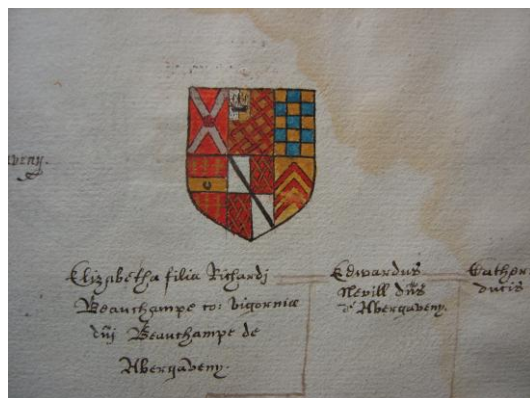 aveny.
Elizabetha filia Richardj
Beauchampe co: Vigorniæ
dñj Beauchampe de
Abergaveny.
Edwardus
Nevill dñs
d' Abergaveny.
Cather
ducis